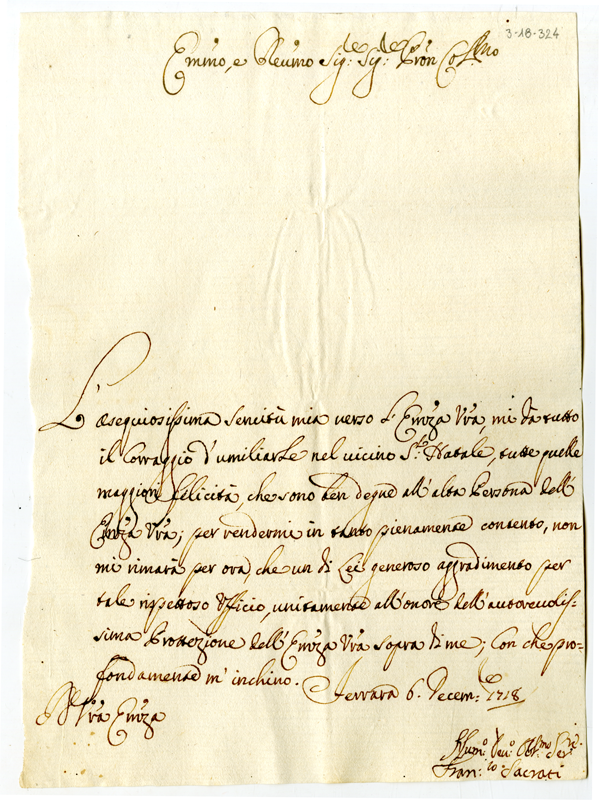 3-18-324
Emĩno, e Reũmo Sig:re Sig:re Pron Col:mo
L'osequiosissima servitù mia verso l'Emñza Vrã, mi dà tutto
il Corraggio d'umiliarle nel vicino S:to Natale, tutte quelle
maggiori felicità, che sono ben degne all'alta Persona dell'
Emñza Vrã; per rendermi in tanto pienamente contento, non
mi rimarà per ora, che un di Lei generoso aggradimento per
tale rispettoso Ufficio, unitamente all'onore dell'autoreuolis-
sima Prottezione dell'Emñza Vrã sopra di me; Con che pro-
fondamente m'inchino. Ferrara 6. Decem:bre 1718
D Vrã Emñza
Hum:o Deu:o Obl:mo Ser:
Fran:co Sacrati